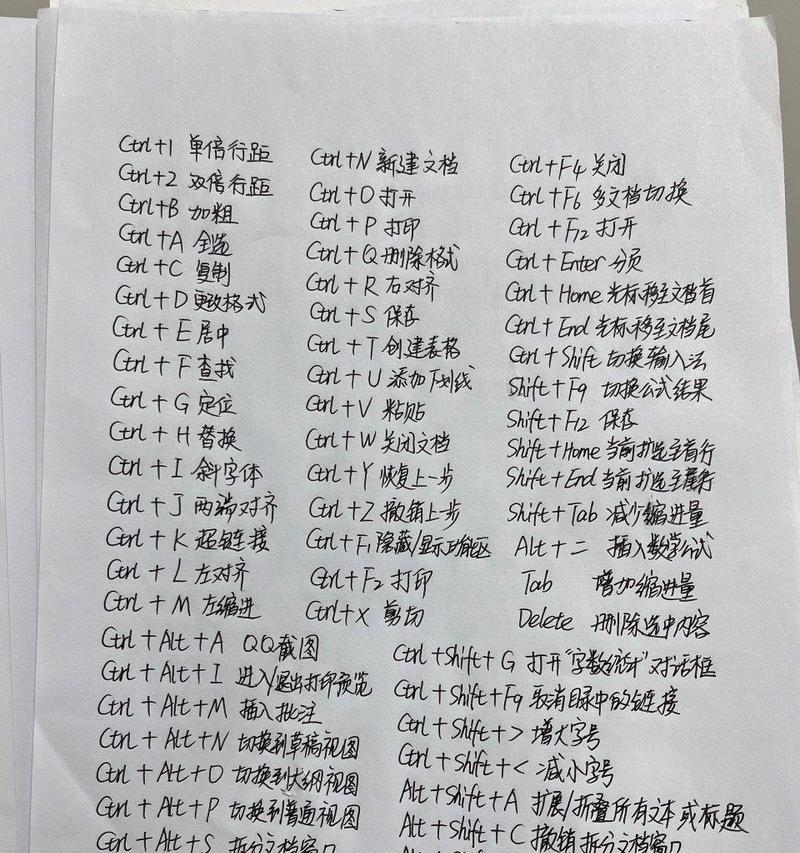 Ctrl+1 单倍行距
Ctrl+2 双倍行距
Ctrl+B 加粗
Ctrl+A 全选
Ctrl+C 复制
Ctrl+D 更改格式
Ctrl+E 居中
Ctrl+F 查找
Ctrl+G 定位
Ctrl+H 替换
Ctrl+I 斜字体
Ctrl+J 两端对齐
Ctrl+K 超链接
Ctrl+L 左对齐
Ctrl+M 左缩进
Ctrl+N 新建文档
Ctrl+O 打开
Ctrl+P 打印
Ctrl+Q 删除格式
Ctrl+R 右对齐
Ctrl+S 保存
Ctrl+T 创建表格
Ctrl+U 添加下划线
Ctrl+V 粘贴
Ctrl+W 关闭文档
Ctrl+Y 恢复上一步
Ctrl+Z 撤销上步
Ctrl+F1 隐藏/显示功能区
Ctrl+F2 打印
Ctrl+X 剪切
Ctrl+F4 关闭
Ctrl+F6 多文档切换
Ctrl+F12 打开
Ctrl+Enter 分页
Ctrl+Home 光标移至文档首
Ctrl+End 光标移至文档尾
Ctrl+Shift 切换输入法
Shift+F9 切换公式结果
Shift+F12 保存
Shift+Home 当前扩选至首行
Shift+End 当前扩选至尾行
Shift+Tab 减少缩进量
Alt+= 插入数学公式
Tab 增加缩进量
Delete 删除选中内容
Ctrl+Alt+A QQ截图
Ctrl+Alt+I 进入/退出打印预览
Ctrl+Alt+M 插入批注
Ctrl+Alt+N 切换到草稿视图
Ctrl+Alt+O 切换到大纲视图
Ctrl+Alt+P 切换到普通视图
Ctrl+Alt+S 拆分文档窗口
Ctrl+Shift+G 打开"字数统计"对话框
Ctrl+Shift+F9 取消目录中的链接
Ctrl+Shift+> 增大字号
Ctrl+Shift+< 减小字号
Alt+Shift+A 扩展/折叠所有文本或标题
Alt+Shift+C 撤销拆分文档窗口